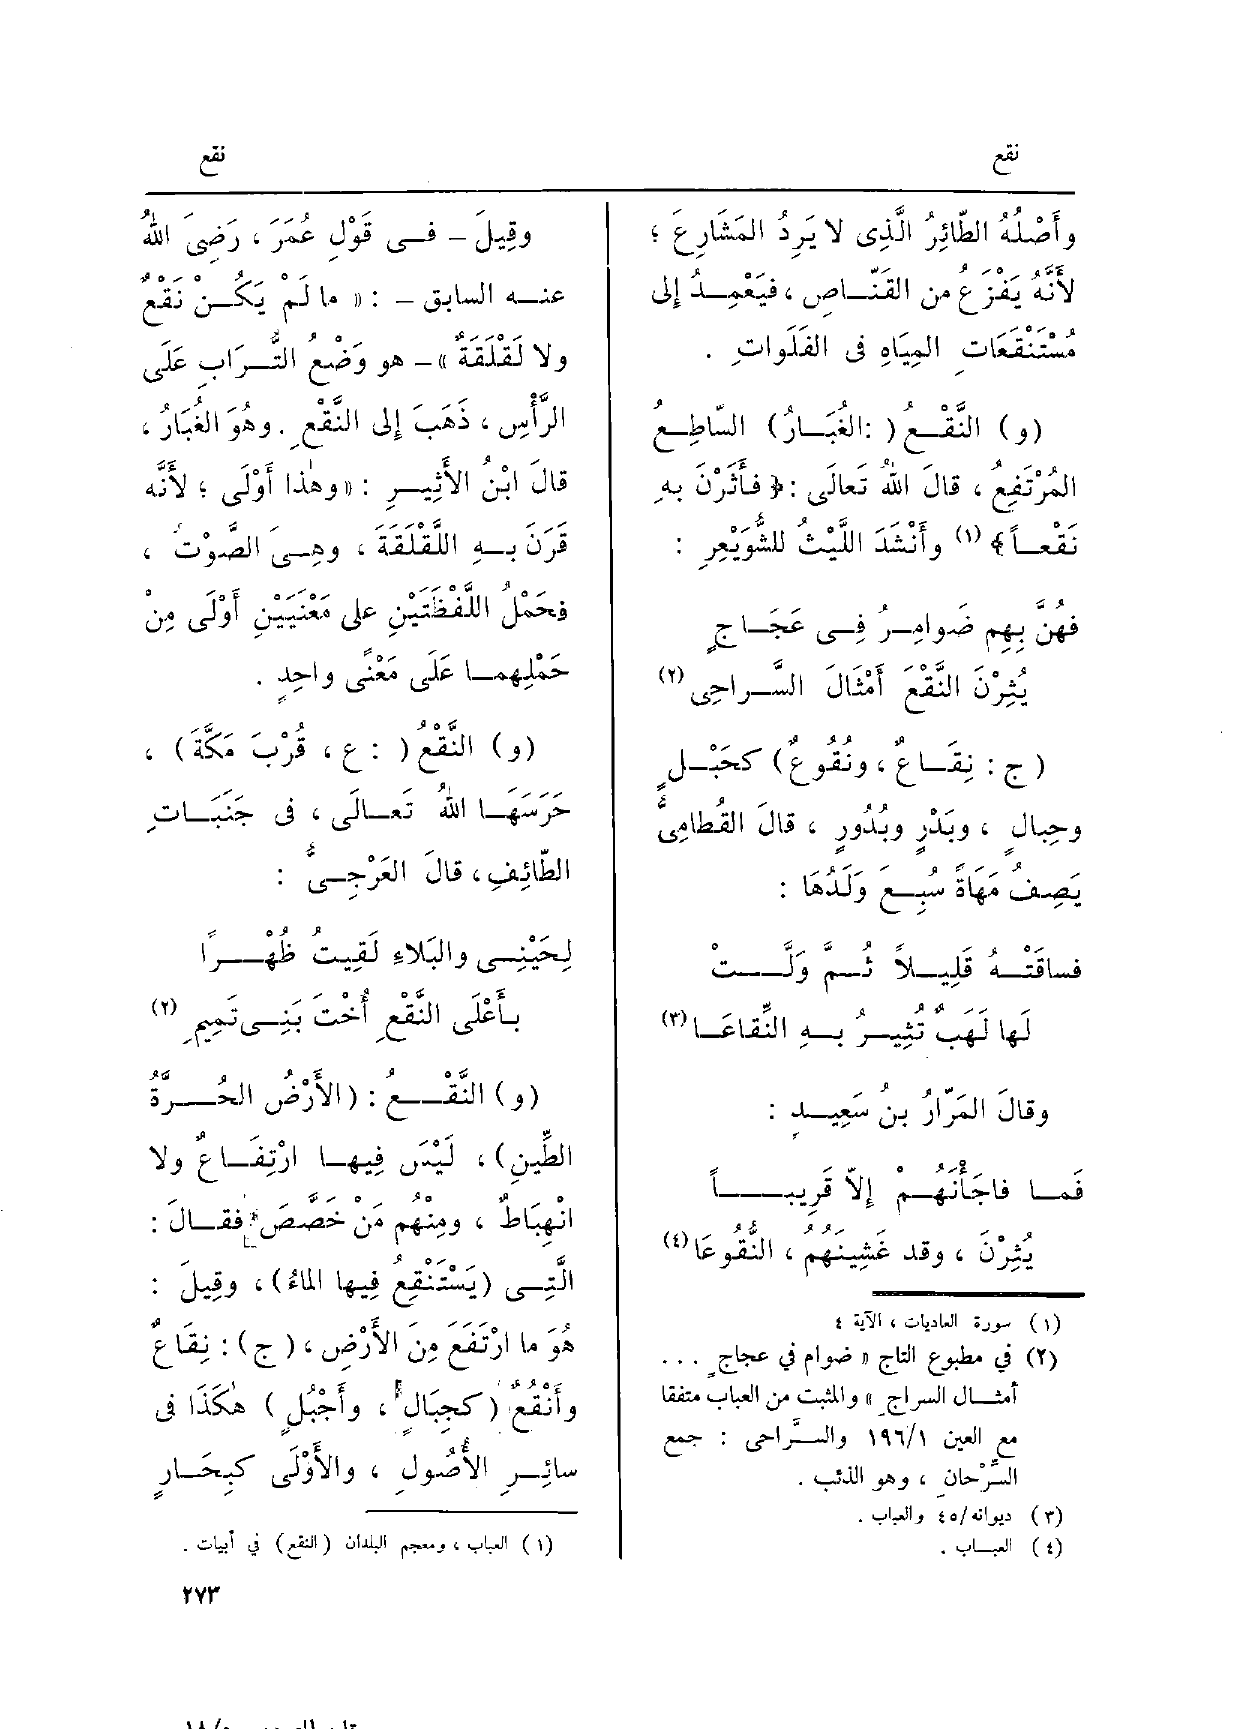 نقع
نقع
وأَصْلُهُ الطّائِرُ الَّذِى لا يَرِدُ المَشَارِعَ ؛
لأَنَّهُ يَفْزَعُ من القَنَّاصِ ، فيَعْمِدُ إلى
مُسْتَنْقَعَاتِ المِيَاهِ فى الفَلَواتِ .
(و) النَّقْعُ ( :الغُبَارُ) السّاطِعُ
المُرْتَفِعُ ، قالَ اللهُ تَعالَى : ﴿ فأَثَرْنَ بِهِ
نَقْعاً﴾ (١) وأَنْشَدَ اللَّيْثُ للشُّوَيْعِرِ :
فهُنَّ بِهِم ضَوامِرُ فِى عَجَاجٍ
يُثِرْنَ النَّقْعَ أَمْثَالَ السَّراحِى (٢)
( ج : نِقَاعٌ ، ونُقُوعٌ) كحَبْلٍ
وحِبالٍ ، وبَدْرٍ وبُدُورٍ ، قالَ القُطامِىُّ
يَصِفُ مَهَاةً سُبِعَ وَلَدُهَا :
فساقَتْهُ قَلِيلاً ثُمَّ وَلَّتْ
لَها لَهَبٌ تُثِيرُ بِهِ النِّقاعَا (٣)
وقالَ المَرّارُ بنُ سَعِيدٍ :
فَما فاجَأْنَهُم إِلاّ قَرِيباً
يُثِرْنَ ، وقد غَشِينَهُمُ ، النُّقُوعَا (٤)
(١) سورة العاديات ، الآية ٤
(٢) في مطبوع التاج « ضوام في عجاجٍ . . .
أمثال السراجِ » والمثبت من العباب متفقا
مع العين ١٩٦/١ والسَّراحى : جمع
السِّرْحانِ ، وهو الذئب .
(٣) ديوانه/٤٥ والعباب .
(٤) العباب .
وقِيلَ – فى قَوْلِ عُمَرَ ، رَضِىَ اللهُ
عنه السابق – : « ما لَمْ يَكُنْ نَقْعٌ
ولا لَقْلَقَةٌ » – هو وَضْعُ التُّرَابِ عَلَى
الرَّأْسِ ، ذَهَبَ إلى النَّقْعِ . وهُوَ الغُبَارُ ،
قالَ ابْنُ الأَثِيرِ : «وهٰذا أَوْلَى ؛ لأَنَّه
قَرَنَ بِهِ اللَّقْلَقَةَ ، وهِىَ الصَّوْتُ ،
فحَمْلُ اللَّفْظَتَيْنِ على مَعْنَيَيْنِ أَوْلَى مِنْ
حَمْلِهِما عَلَى مَعْنًى واحِدٍ .
(و) النَّقْعُ ( : ع ، قُرْبَ مَكَّةَ ) ،
حَرَسَهَا اللهُ تَعالَى ، فى جَنَبَاتِ
الطّائِفِ ، قالَ العَرْجِىُّ :
لِحَيْنِى والبَلاءِ لَقِيتُ ظُهْرًا
بأَعْلَى النَّقْعِ أُخْتَ بَنِى تَمِيمِ (٢)
(و) النَّقْعُ : (الأَرْضُ الحُرَّةُ
الطِّينِ) ، لَيْسَ فِيها ارْتِفَاعٌ ولا
انْهِبَاطٌ ، ومِنْهُم مَنْ خَصَّصَ فقالَ :
الَّتِى (يَسْتَنْقِعُ فِيها الماءُ) ، وقِيلَ :
هُوَ ما ارْتَفَعَ مِنَ الأَرْضِ ، (ج) : نِقَاعٌ
وأَنْقُعٌ ( كجِبَالٍ ، وأَجْبُلٍ ) هٰكَذَا فى
سائِرِ الأُصُولِ ، والأَوْلَى كبِحَارٍ
(١) العباب ، ومعجم البلدان (النقع) في أبيات .
٢٧٣